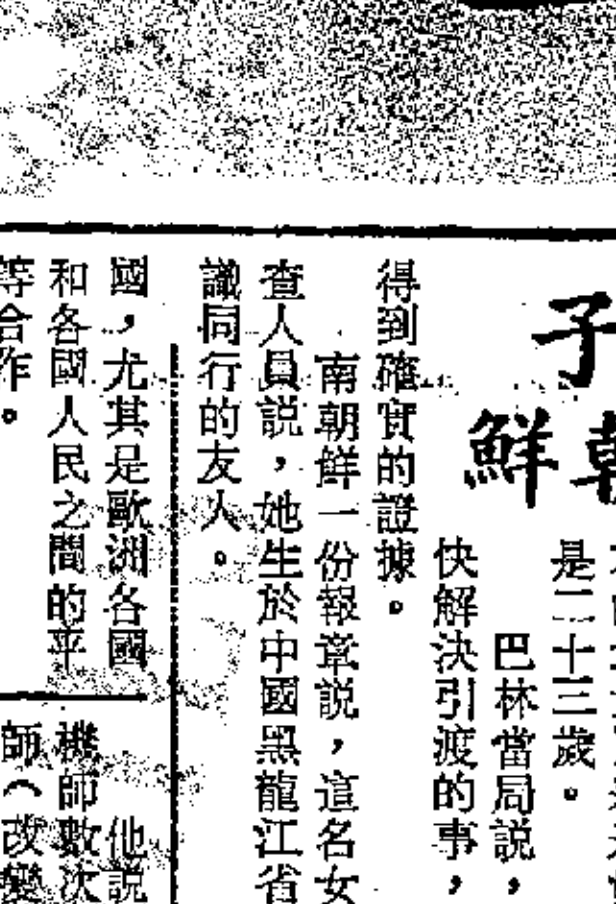 子
鮮
是二十三歲。
巴林當局説，
快解決引渡的事，
得到確實的證據。
南朝鮮一份報章説，這名女
查人員説，她生於中國黑龍江省
識同行的友人。
國，尤其是歐洲各國
和各國人民之間的平
等合作。
他説
機師數次
師（改變